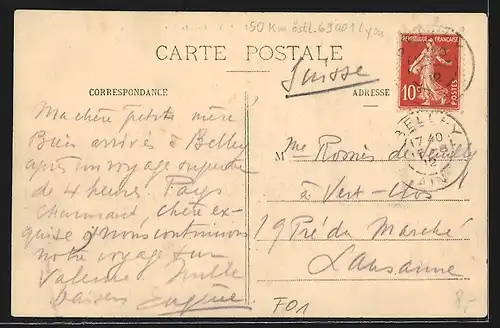 50 Km östl. 69001 Lyon
CARTE POSTALE
Suisse
CORRESPONDANCE
ADRESSE
REPUBLIQUE FRANCAISE
10c
POSTES
BELLEY
17 40
AIN
Ma chère petite mère
Bien arrivés à Belley
après un voyage superbe
de 4 heures. Pays
charmant, chère ex-
quise & nous continuons
notre voyage sur
Valence. Mille
baisers Eugène
M me de
à Vert-Clos
19 Pré du Marché
Lausanne
F01
8.-